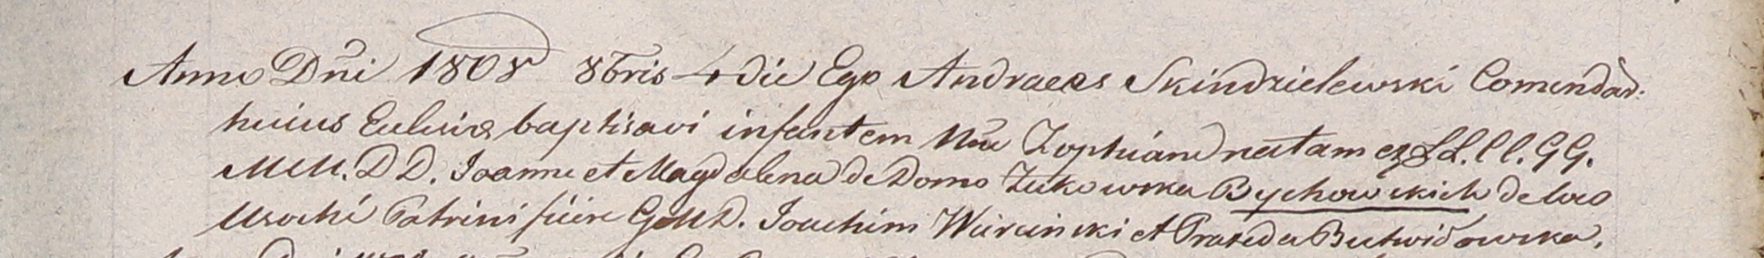 Anno Dñi 1808 8bris 4 die Ego Andraeas Skindzielewski Comendad:
huius Eclesiæ baptisavi infantem Nõe Zophiam natam ex LL. ll. GG.
MM. DD. Joanne et Magdalena de Domo Zukowska Bychowskich de loco
Usochi Patrini fuere GMD. Joachim Wiercinski et Praxeda Butwidowska.